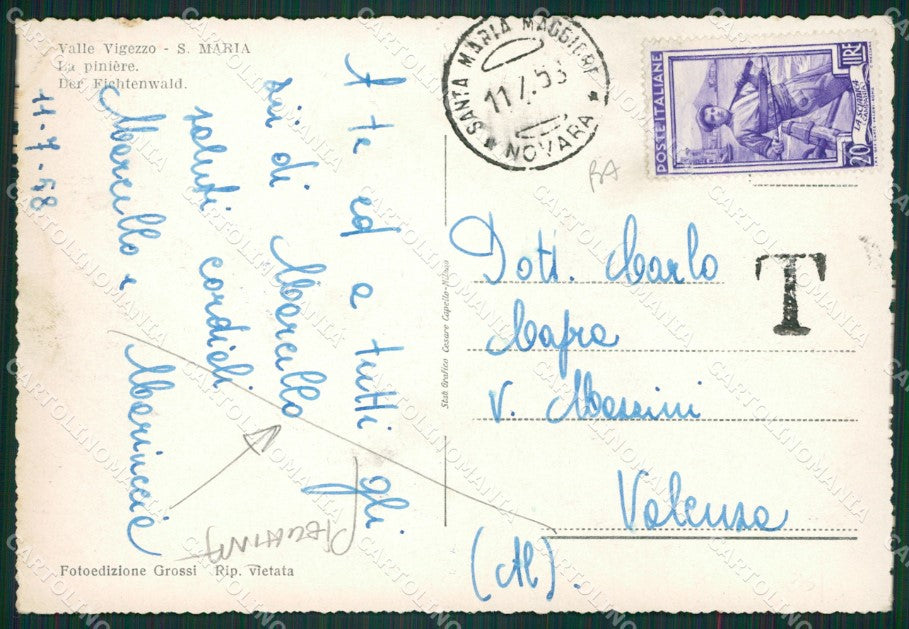 Valle Vigezzo - S. MARIA
La pinière.
Der Fichtenwald.
11-7-58
A te ed a tutti gli
zii di Marcello
saluti cordiali
Marcello e Mariuccia
Fotoedizione Grossi Rip. vietata
Stab. Grafico Cesare Capello-Milano
SANTA MARIA MAGGIORE
11.7.53
* NOVARA *
POSTE ITALIANE
20 LIRE
RA
T
Dott. Carlo
Cafra
V. Mazzini
Valenza
(Al).
CARTOLINOMANIA